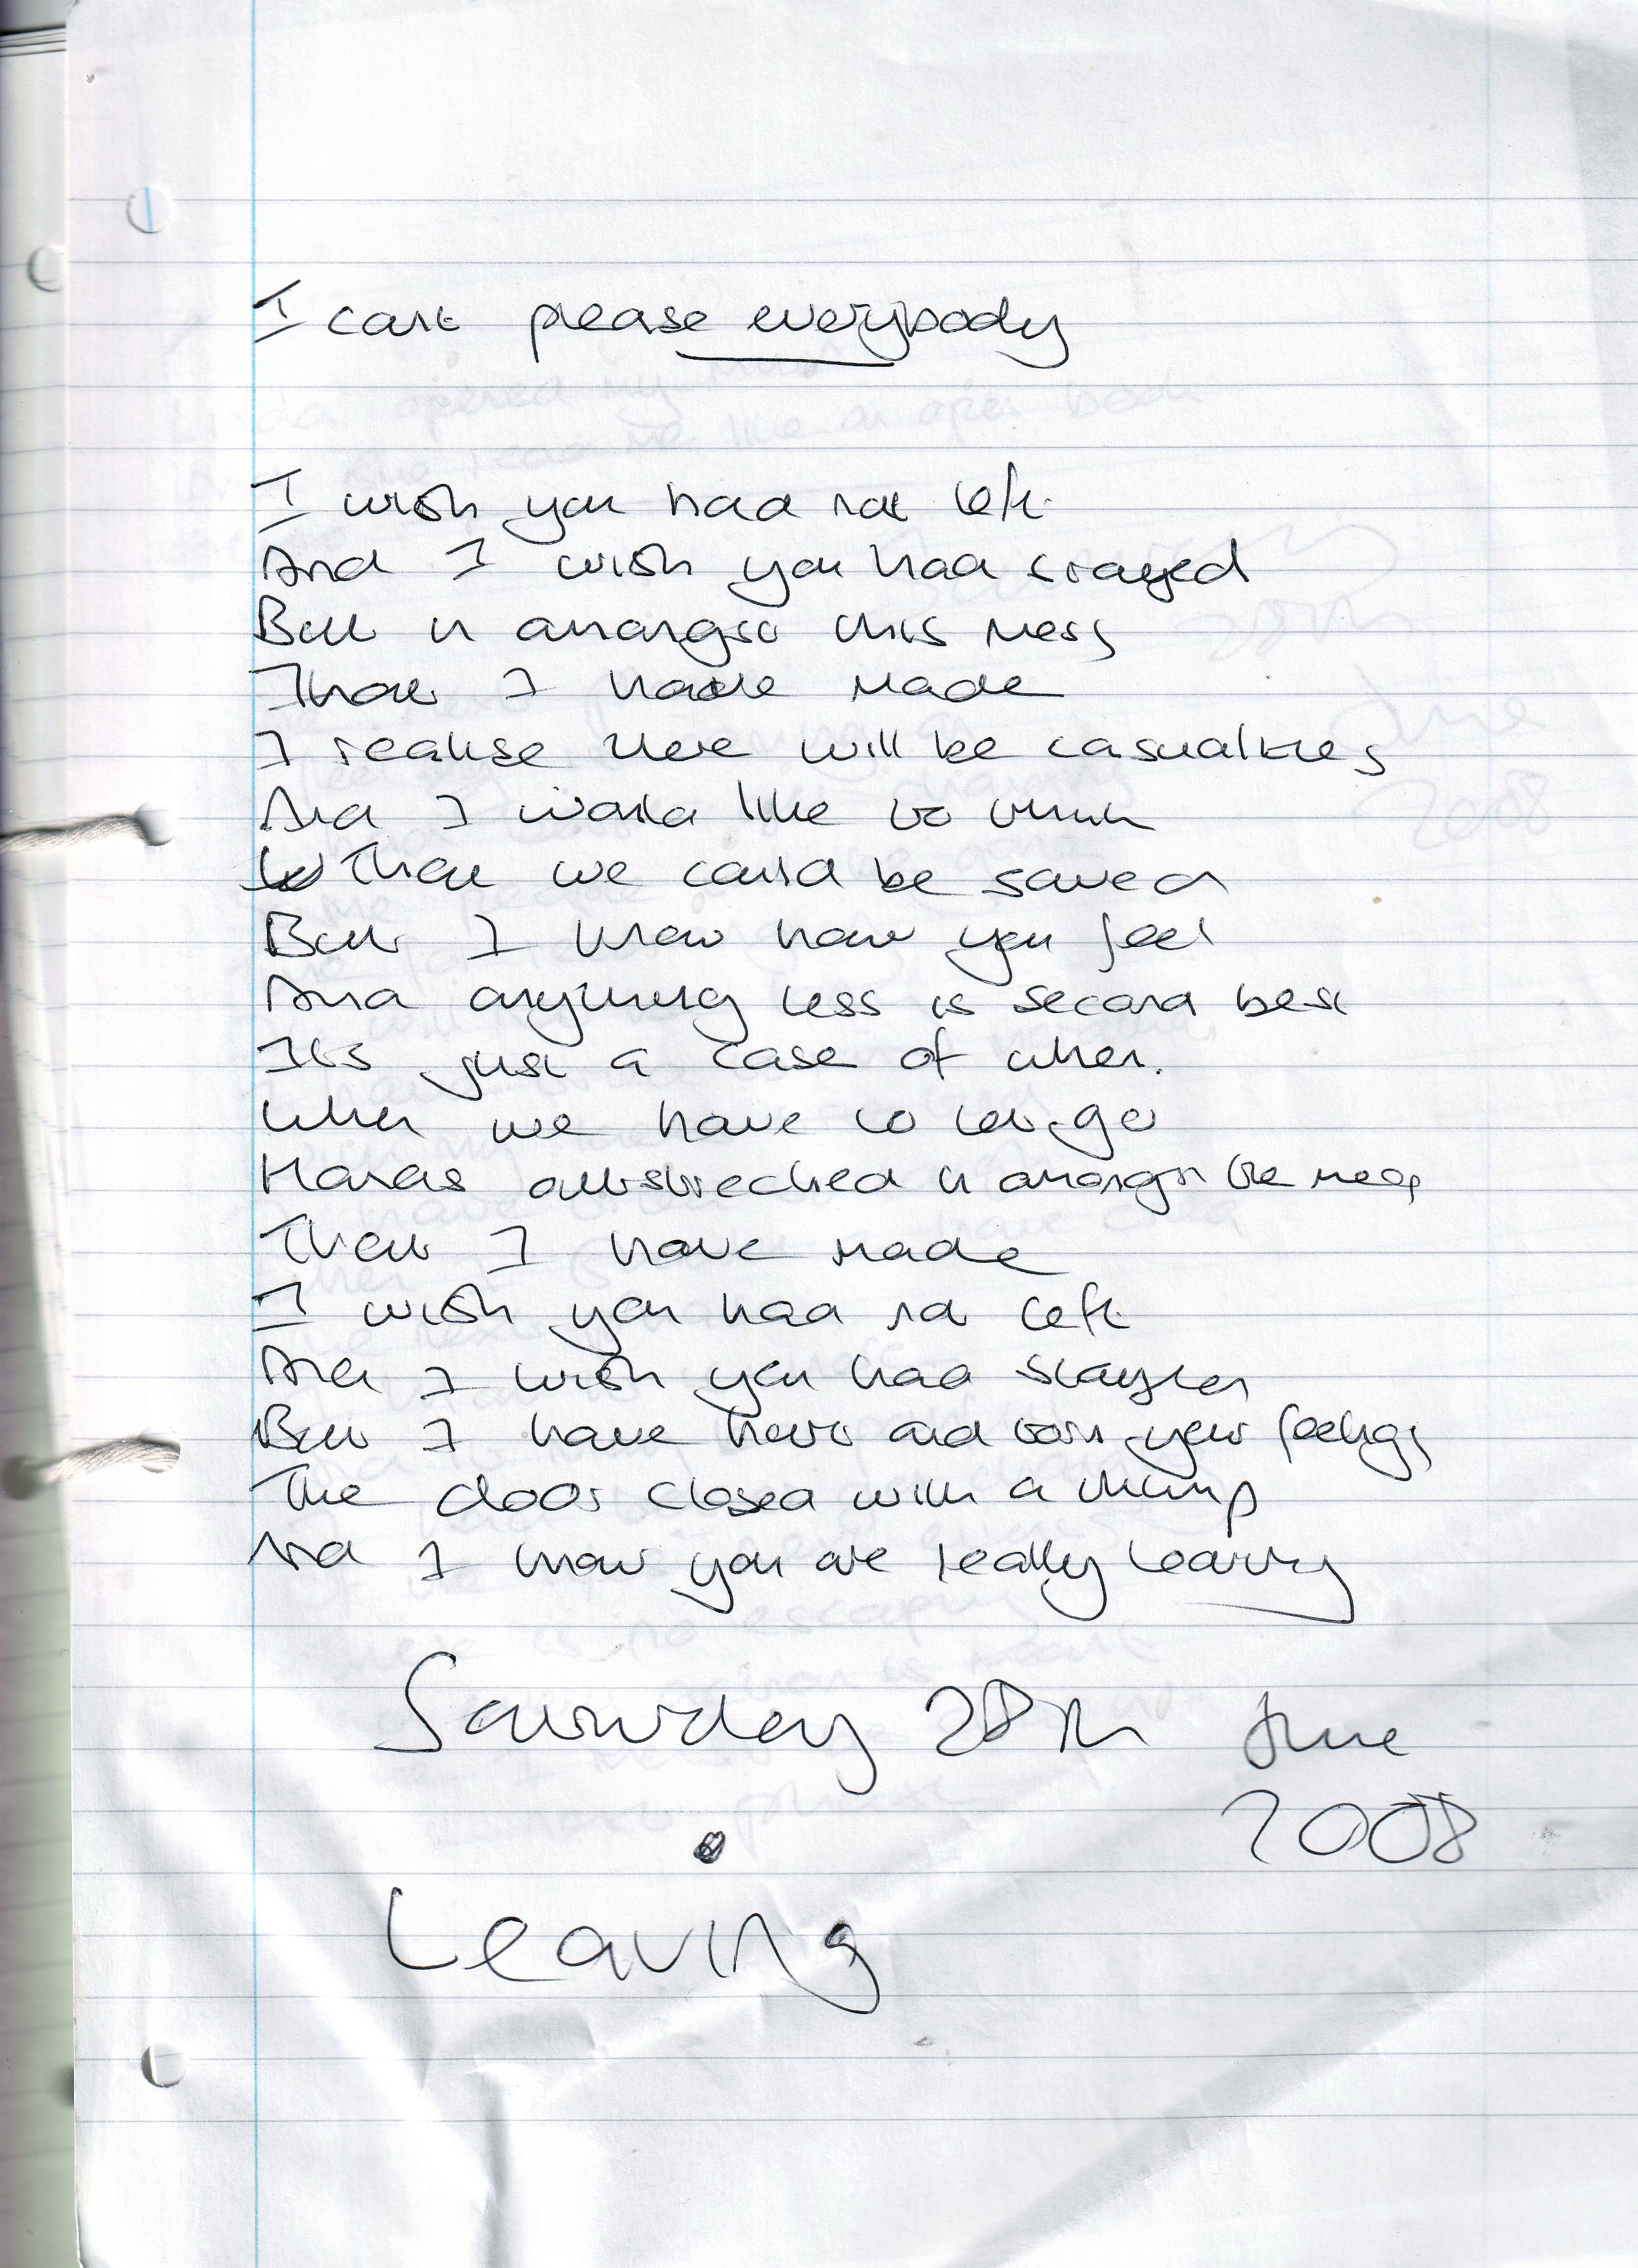 I cant please everybody
I wish you had not left.
And I wish you had stayed
But in amongst this mess
That I have made
I realise there will be casualties
And I would like to think
That we could be saved
But I know how you feel
And anything less is second best
Its just a case of when.
When we have to let go
Hands outstreched in amongst the mess
That I have made
I wish you had not left
And I wish you had stayed
But I have hurt and torn your feelings
The door closed with a thump
And I know you are really leaving
Saturday 28th June
2008
Leaving